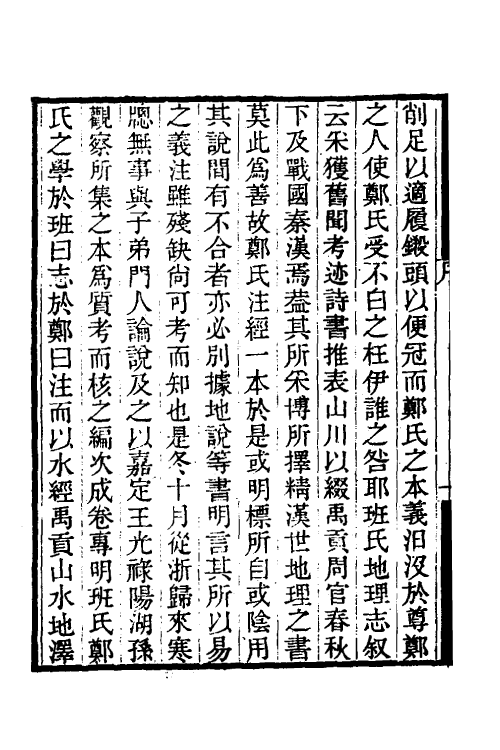 削足以適履鍛頭以便冠而鄭氏之本義汩沒於尊鄭
之人使鄭氏受不白之枉伊誰之咎耶班氏地理志叙
云采獲舊聞考迹詩書推表山川以綴禹貢周官春秋
下及戰國秦漢焉葢其所采博所擇精漢世地理之書
莫此爲善故鄭氏注經一本於是或明標所自或陰用
其說間有不合者亦必別據地說等書明言其所以易
之義注雖殘缺尙可考而知也是冬十月從浙歸來寒
牕無事與子弟門人論說及之以嘉定王光祿陽湖孫
觀察所集之本爲質考而核之編次成卷專明班氏鄭
氏之學於班曰志於鄭曰注而以水經禹貢山水地澤